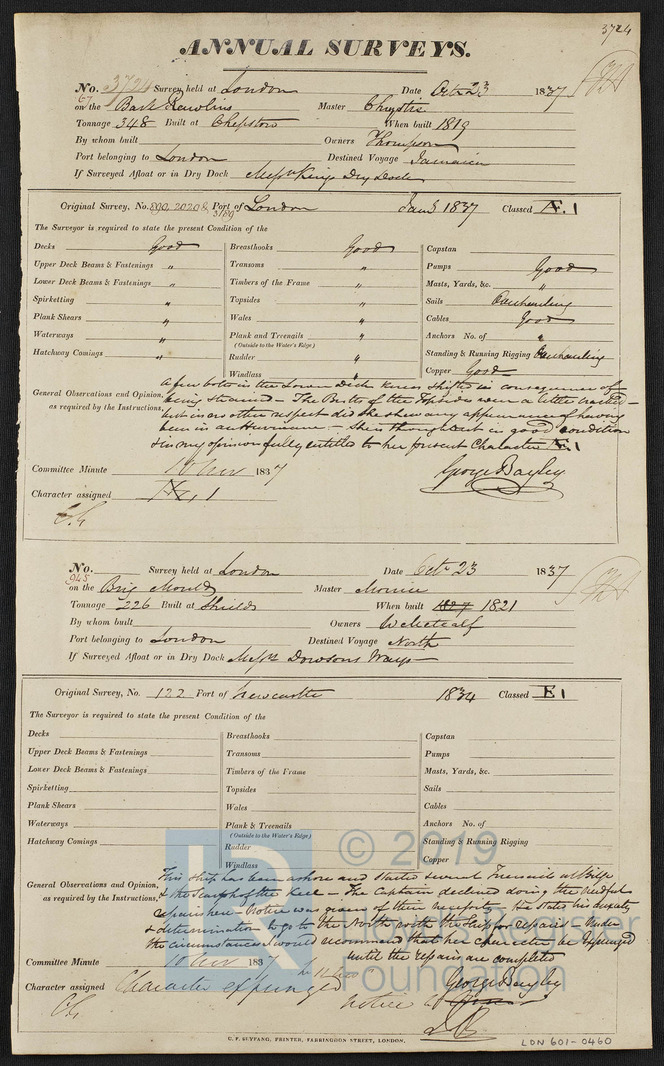 3724
ANNUAL SURVEYS.
No. 3724 Survey held at London Date Octr 23 1837
67 on the Bark Rawlins Master Chrystie
Tonnage 348 Built at Chepstow When built 1819
By whom built Owners Thompson
Port belonging to London Destined Voyage Jamaica
If Surveyed Afloat or in Dry Dock Messrs Kings Dry Dock
Original Survey, No. 890, 2020 & 3189 Port of London Jan 3 1837 Classed Æ.1
The Surveyor is required to state the present Condition of the
Decks Good Breasthooks Good Capstan
Upper Deck Beams & Fastenings " Transoms " Pumps Good
Lower Deck Beams & Fastenings " Timbers of the Frame " Masts, Yards, &c. "
Spirketting " Topsides " Sails Overhauling
Plank Shears " Wales " Cables Good
Waterways " Plank and Treenails " Anchors No. of "
(Outside to the Water's Edge)
Hatchway Comings " Rudder " Standing & Running Rigging Overhauling
Windlass " Copper Good
General Observations and Opinion, as required by the Instructions,
a few bolts in the Lower Deck knees shifted in consequence of
being strained – The Butts of the Topsides were a little cracked –
but in no other respect did she shew any appearance of having
been in an Hurricane – She is thought but in good condition
& in my opinion fully entitled to her present Character Æ.1
Committee Minute 10 Nov 1837 George Bayley
Character assigned Æ. 1
C.G
No. Survey held at London Date Octr 23 1837
945 on the Brig Master
Tonnage 226 Built at Shields When built 1827 1821
By whom built Owners W Metcalf
Port belonging to London Destined Voyage North
If Surveyed Afloat or in Dry Dock Messrs Dowsons Ways
Original Survey, No. 122 Port of Newcastle 1834 Classed E 1
The Surveyor is required to state the present Condition of the
Decks Breasthooks Capstan
Upper Deck Beams & Fastenings Transoms Pumps
Lower Deck Beams & Fastenings Timbers of the Frame Masts, Yards, &c.
Spirketting Topsides Sails
Plank Shears Wales Cables
Waterways Plank & Treenails Anchors No. of
(Outside to the Water's Edge)
Hatchway Comings Rudder Standing & Running Rigging
Windlass Copper
General Observations and Opinion, as required by the Instructions,
This Ship has been ashore and started several Treenails
& the Scarph of the Keel – The Captain declined doing the needful
repairs here – Notice was given of their necessity – He states his anxiety
& determination to go to the North with the Ship for repairs – Under
the circumstances I would recommend that her character be expunged
until the repairs are completed
Committee Minute 10 Nov 1837 George Bayley
Character assigned Character expunged notice
C.G
G. F. SEYFANG, PRINTER, FARRINGDON STREET, LONDON.
LDN 601-0460
© 2019
LR
Lloyd's Register
Foundation